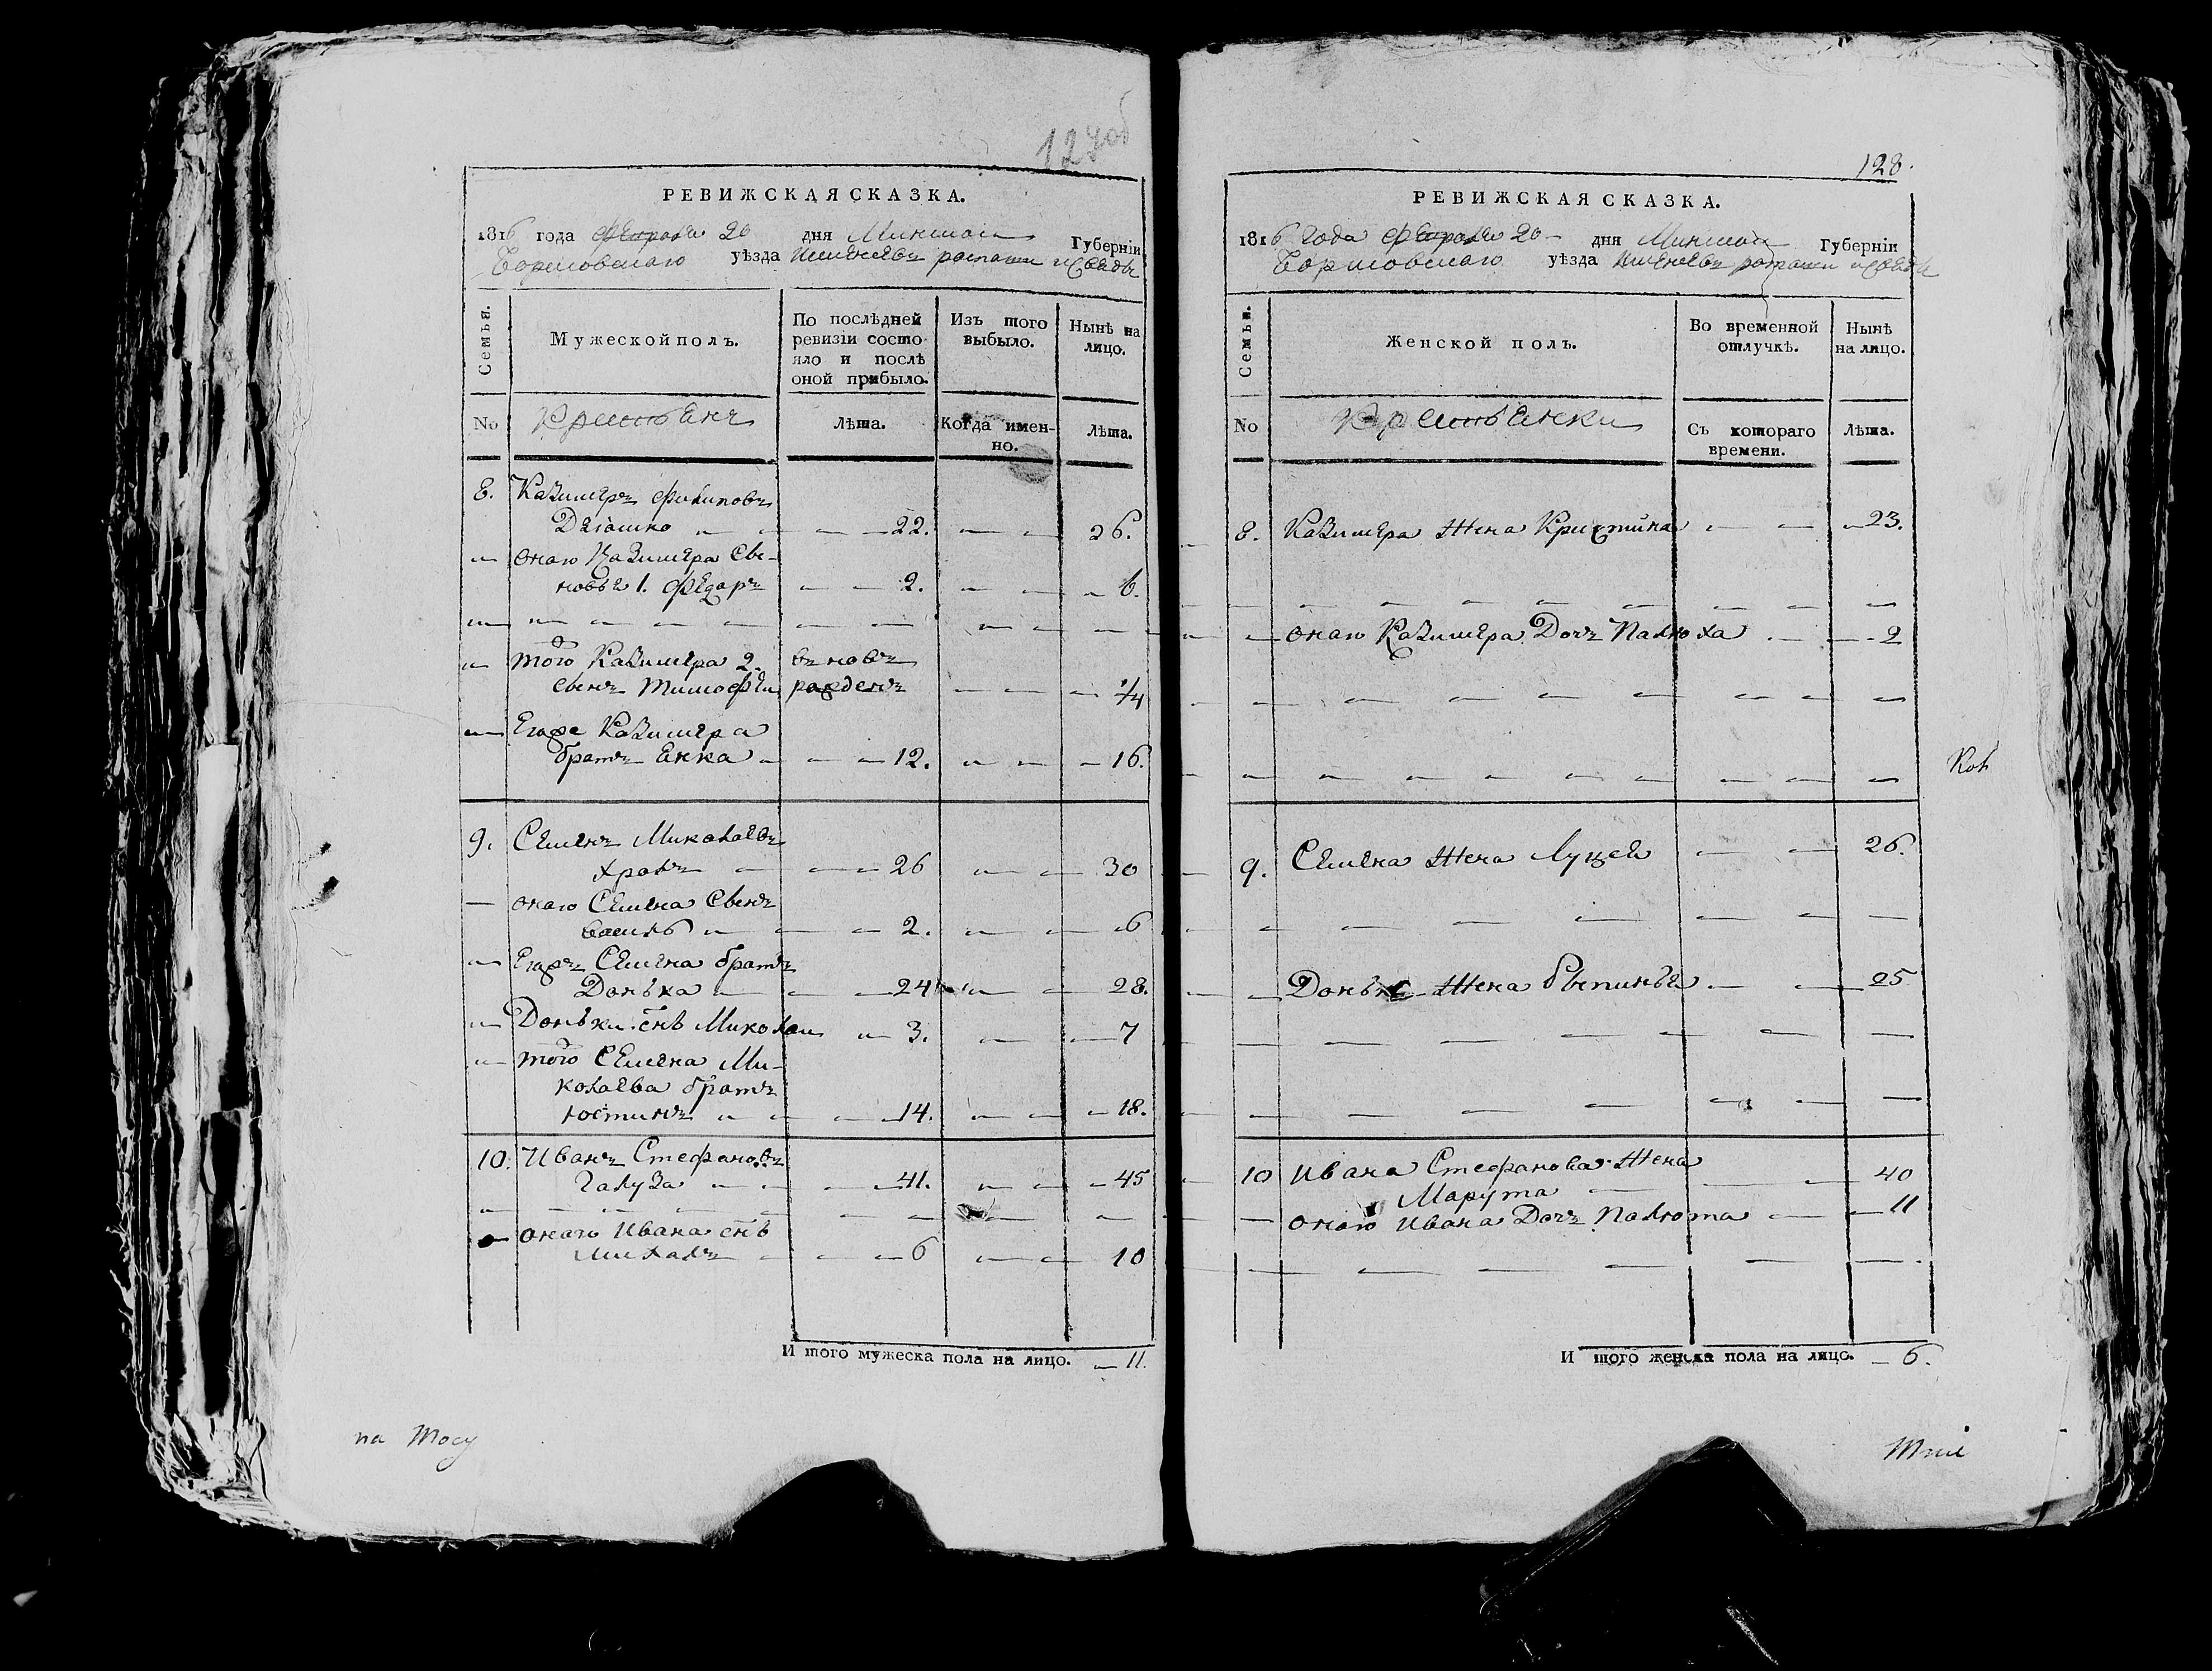 127об
РЕВИЖСКАЯ СКАЗКА.
1816 года Февраля 20 дня Минской Губерніи
Борисовскаго уѣзда
Семья.
Мужеской полъ.
По послѣдней ревизіи состояло и послѣ оной прибыло.
Изъ того выбыло.
Нынѣ на лицо.
No
Крестьянъ
Лѣта.
Когда именно.
Лѣта.
8. Казимеръ Филиповъ
22. 26.
оного Казимера Сы-
новья 1. Федоръ 2. 6.
того Казимера 2. вновь
сынъ Тимофей рожденъ 1/4
Егоже Казимера
братъ Янка 12. 16.
9. Семенъ Миколаевъ
Хролъ 26 30
оного Семена Сынъ
Василь 2. 6
Егожъ Семена братъ
Донька 24 28.
Доньки снъ Миколай 3. 7
того Семена Ми-
колаева братъ
Юстинъ 14. 18.
10. Иванъ Стефановъ
Галуза 41. 45
оного Ивана снъ
Михалъ 6 10
И того мужеска пола на лицо. 11.
на
128.
РЕВИЖСКАЯ СКАЗКА.
1816 года Февраля 20 дня Минской Губерніи
Борисовскаго уѣзда
Семья.
Женской полъ.
Во временной отлучкѣ.
Нынѣ на лицо.
No
Крестьянки
Съ котораго времени.
Лѣта.
8. Казимера Жена Кристина 23.
оного Казимера Дочъ Палюха 2
9. Семена Жена Луцея 26.
Доньки Жена 25
10 Ивана Стефанова Жена
Марута 40
оного Ивана Дочъ Палюта 11
И того женска пола на лицо. 6.